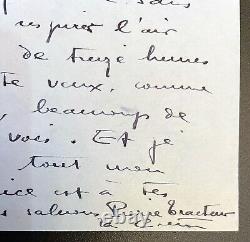 sans
respirer l'air
de treize heures
te veux, comme
, beaucoup de
vois. Et je
tout mon
ice est à tes
s salues Pierre Tracteur